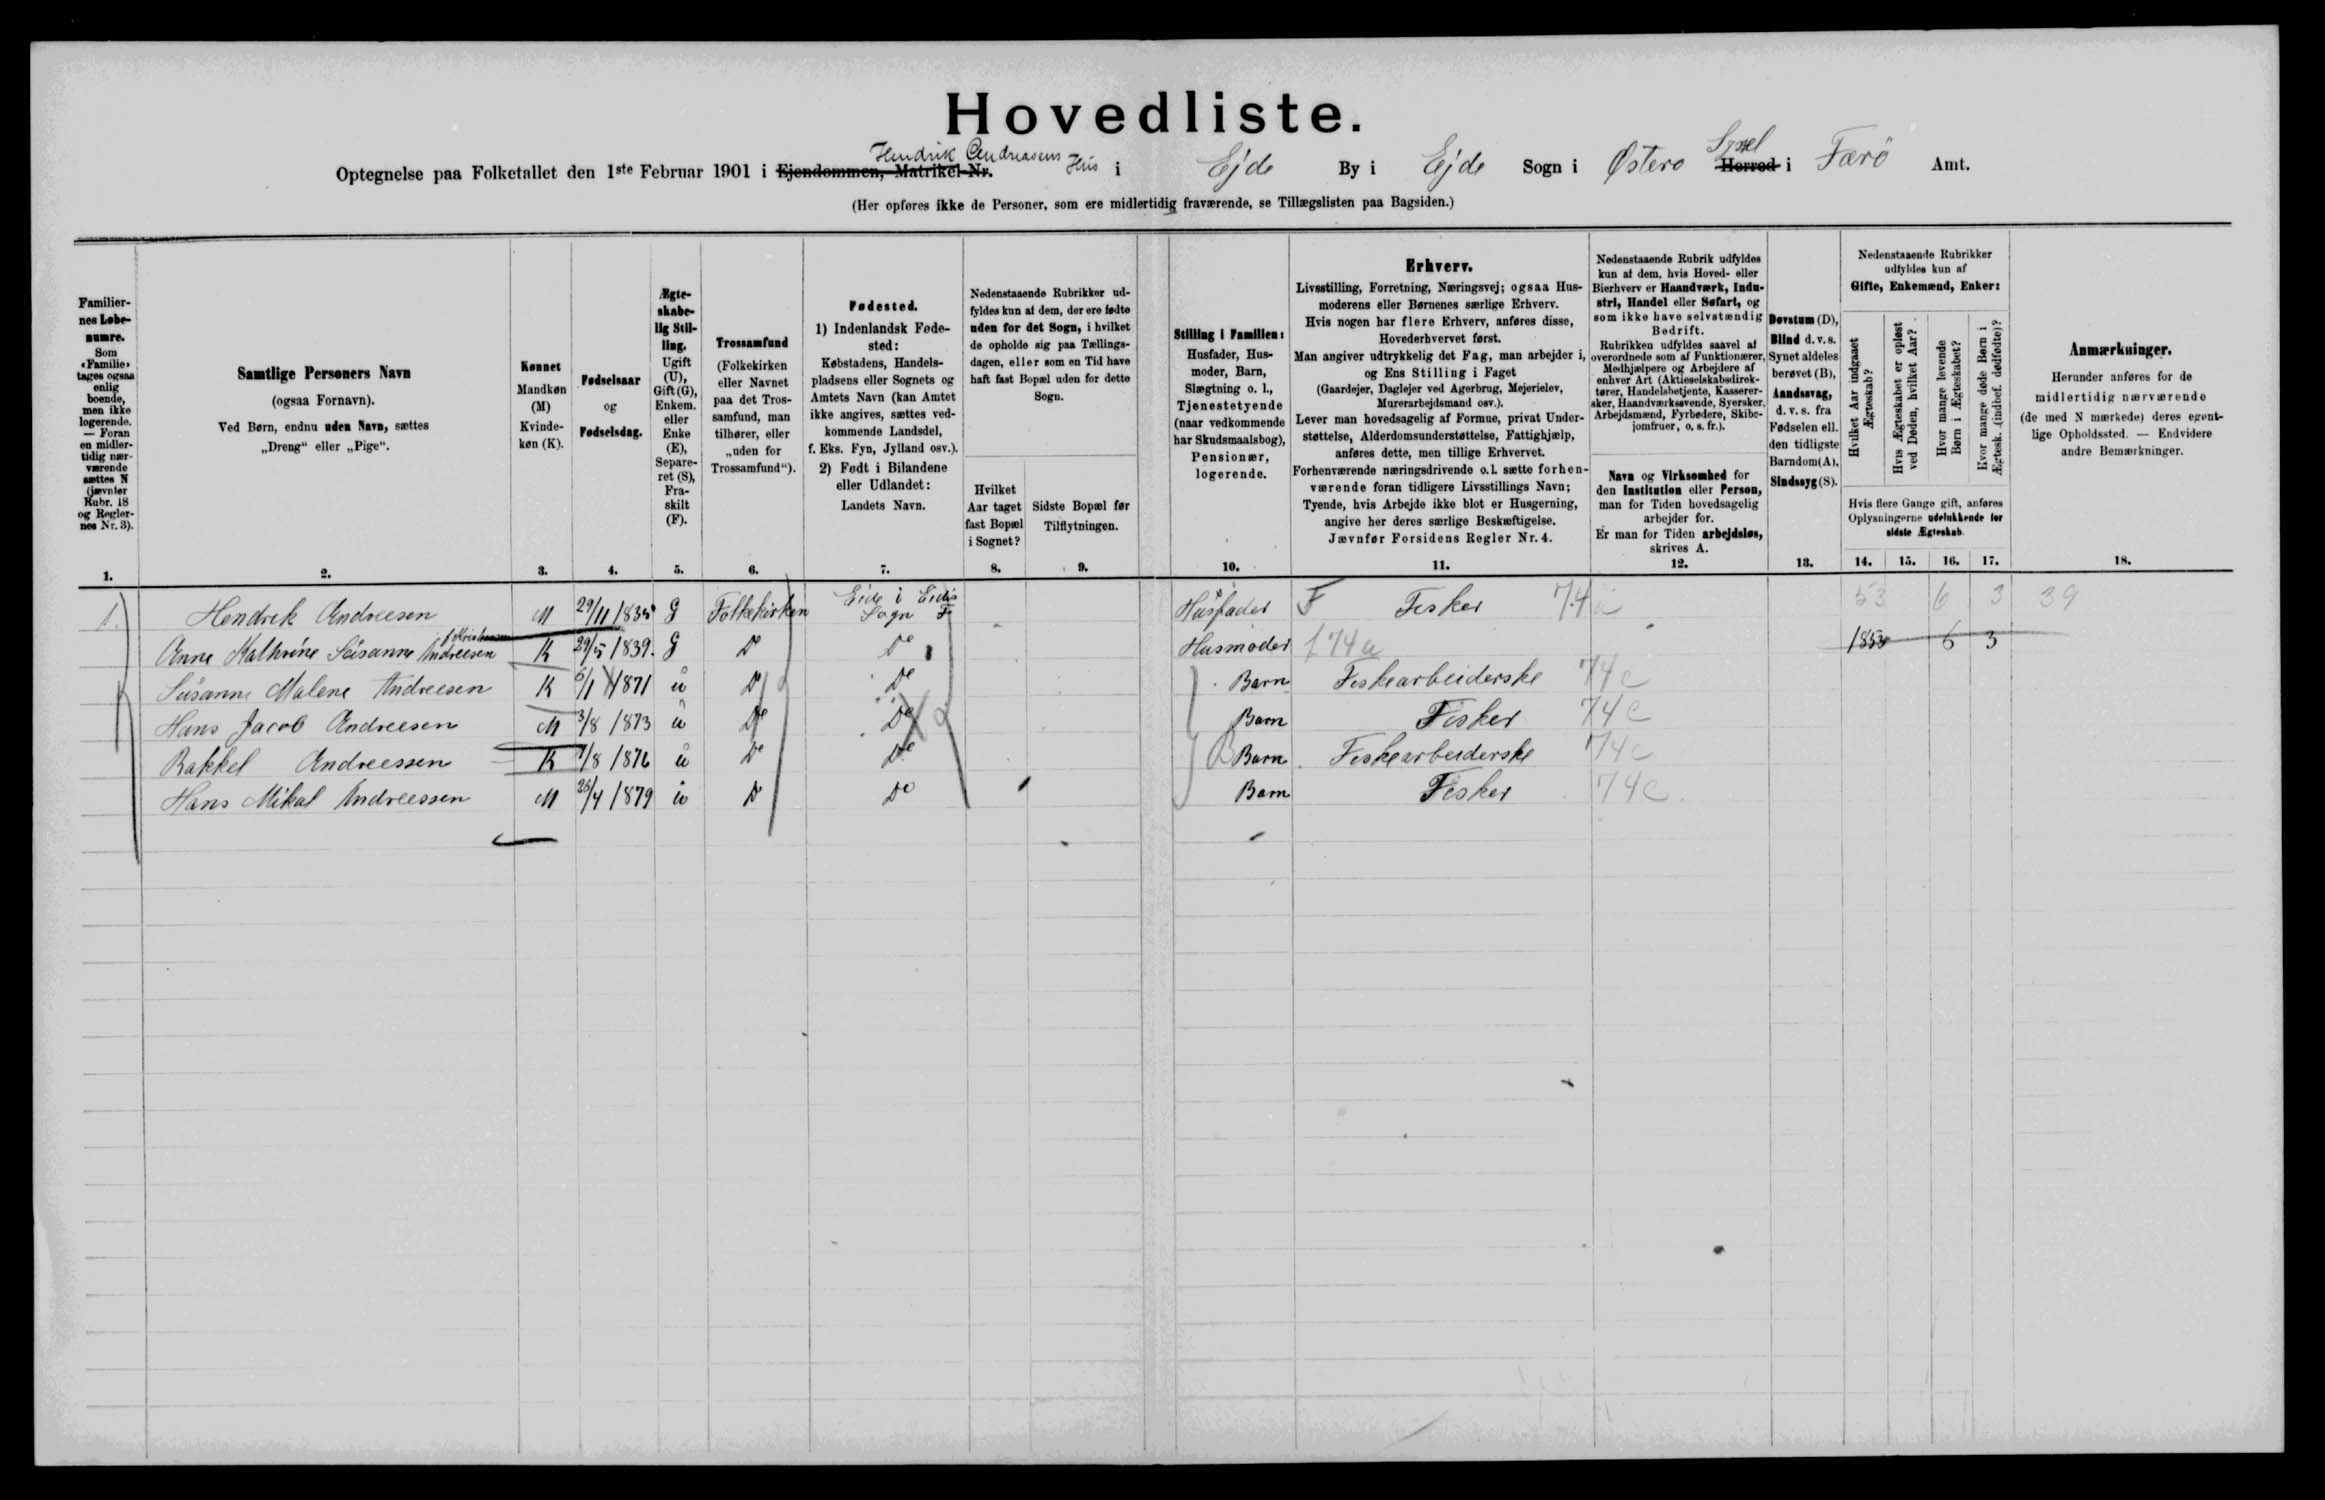 Hovedliste.
Optegnelse paa Folketallet den 1ste Februar 1901 i Ejendommen, Matrikel-Nr. Hendrik Andreasens Hus i Ejde By i Ejde Sogn i Østerø Herred Syssel i Færö Amt.
(Her opføres ikke de Personer, som ere midlertidig fraværende, se Tillægslisten paa Bagsiden.)
Familiernes Løbenumre.
Som «Familie» tages ogsaa enlig boende, men ikke logerende. — Foran en midlertidig nærværende sættes N (jævnfør Rubr. 18 og Reglernes Nr. 3).
1.
Samtlige Personers Navn
(ogsaa Fornavn).
Ved Børn, endnu uden Navn, sættes
„Dreng“ eller „Pige“.
2.
Kønnet
Mandkøn (M)
Kvindekøn (K).
3.
Fødselsaar
og
Fødselsdag.
4.
Ægteskabelig Stilling.
Ugift (U), Gift (G), Enkem. eller Enke (E), Separeret (S), Fraskilt (F).
5.
Trossamfund
(Folkekirken eller Navnet paa det Trossamfund, man tilhører, eller „uden for Trossamfund“).
6.
Fødested.
1) Indenlandsk Fødested:
Købstadens, Handelspladsens eller Sognets og Amtets Navn (kan Amtet ikke angives, sættes vedkommende Landsdel, f. Eks. Fyn, Jylland osv.).
2) Født i Bilandene eller Udlandet:
Landets Navn.
7.
Nedenstaaende Rubrikker udfyldes kun af dem, der ere fødte uden for det Sogn, i hvilket de opholde sig paa Tællingsdagen, eller som en Tid have haft fast Bopæl uden for dette Sogn.
Hvilket Aar taget fast Bopæl i Sognet?
8.
Sidste Bopæl før Tilflytningen.
9.
Stilling i Familien:
Husfader, Husmoder, Barn, Slægtning o. l., Tjenestetyende (naar vedkommende har Skudsmaalsbog), Pensionær, logerende.
10.
Erhverv.
Livsstilling, Forretning, Næringsvej; ogsaa Husmoderens eller Børnenes særlige Erhverv.
Hvis nogen har flere Erhverv, anføres disse, Hovederhvervet først.
Man angiver udtrykkelig det Fag, man arbejder i, og Ens Stilling i Faget
(Gaardejer, Daglejer ved Agerbrug, Mejerielev, Murerarbejdsmand osv.).
Lever man hovedsagelig af Formue, privat Understøttelse, Alderdomsunderstøttelse, Fattighjælp, anføres dette, men tillige Erhvervet.
Forhenværende næringsdrivende o. l. sætte forhenværende foran tidligere Livsstillings Navn;
Tyende, hvis Arbejde ikke blot er Husgerning, angive her deres særlige Beskæftigelse.
Jævnfør Forsidens Regler Nr. 4.
11.
Nedenstaaende Rubrik udfyldes kun af dem, hvis Hoved- eller Bierhverv er Haandværk, Industri, Handel eller Søfart, og som ikke have selvstændig Bedrift.
Rubrikken udfyldes saavel af overordnede som af Funktionærer, Medhjælpere og Arbejdere af enhver Art (Aktieselskabsdirektører, Handelsbetjente, Kasserersker, Haandværkssvende, Syersker, Arbejdsmænd, Fyrbødere, Skibejomfruer, o. s. fr.).
Navn og Virksomhed for den Institution eller Person, man for Tiden hovedsagelig arbejder for.
Er man for Tiden arbejdsløs, skrives A.
12.
Døvstum (D),
Blind d. v. s. Synet aldeles berøvet (B),
Aandssvag, d. v. s. fra Fødselen ell. den tidligste Barndom (A),
Sindssyg (S).
13.
Nedenstaaende Rubrikker udfyldes kun af
Gifte, Enkemænd, Enker:
Hvilket Aar indgaaet Ægteskab?
Hvis Ægteskabet er opløst ved Døden, hvilket Aar?
Hvor mange levende Børn i Ægteskabet?
Hvor mange døde Børn i Ægtesk. (indbef. dødfødte)?
Hvis flere Gange gift, anføres Oplysningerne udelukkende for sidste Ægteskab.
14. 15. 16. 17.
Anmærkninger.
Herunder anføres for de midlertidig nærværende (de med N mærkede) deres egentlige Opholdssted. — Endvidere andre Bemærkninger.
18.
1. Hendrik Andreesen M 29/11 1835 G Folkekirken Eide i Eidis Sogn F Husfader F Fisker 74 a 53 6 3 39
Anne Kathrine Susanne Andreesen K 29/5 1839. G Do Do Husmoder f 74 a 1853 6 3
Susanne Malene Andreesen K 6/1 1871 u Do Do Barn Fiskearbeiderske 74 c
Hans Jacob Andreesen M 3/8 1873 u Do Do Barn Fisker 74 c
Rakkel Andreessen K 1/8 1876 u Do Do Barn Fiskearbeiderske 74 c
Hans Mikal Andreessen M 26/4 1879 u Do Do Barn Fisker 74 c.